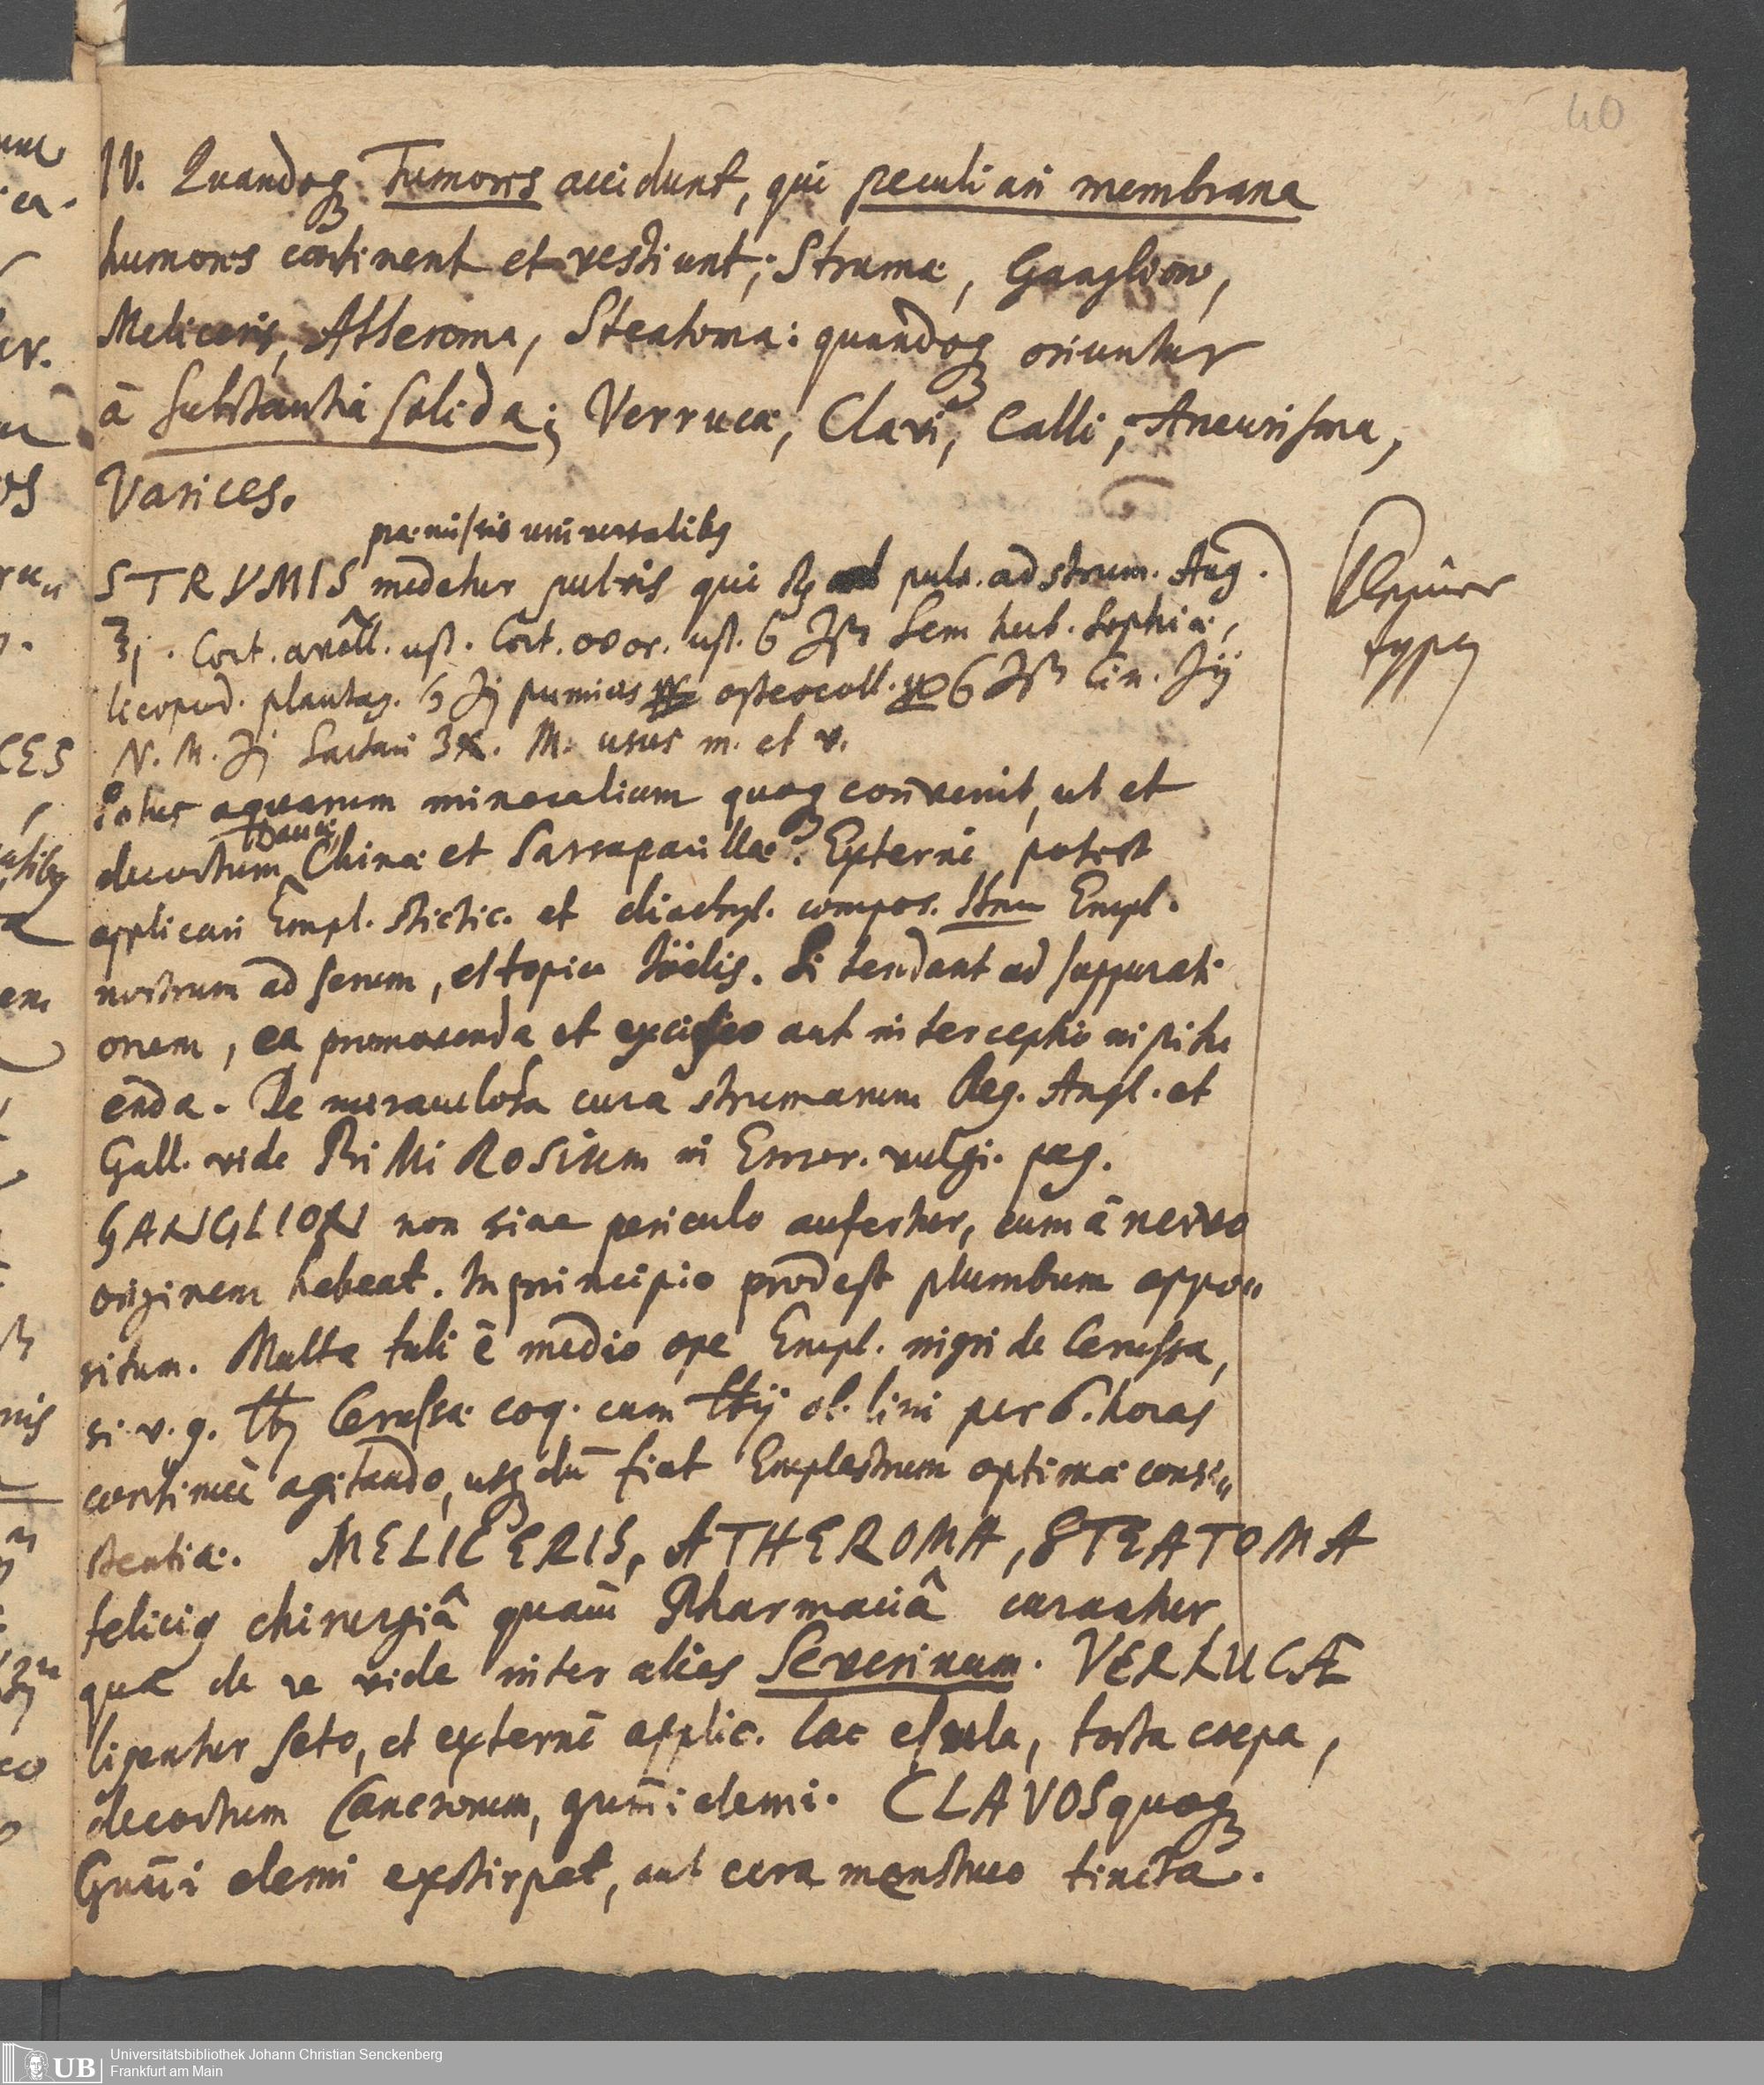 40
IV. Quandoq₃ Tumores accidunt, qui peculiari membrana
humores continent et vestiunt; Strumæ, Ganglion,
Meliceris, Atheroma, Steatoma: quandoq₃ oriuntur
à Substantiâ solida; Verrucæ, Clavi, Calli, Aneurisma,
Varices.
præmissis universalib9
STRUMIS medetur pulvis qui ℞ pulv. ad strum. Aug.
ʒj. Cort. avell. ust. Cort. ovor. ust. Sem herb. Sophiæ,
plantag. pumicis osteocoll. Cin.
N. M. M. usus m. et v.
Potus aquarum mineralium quoq₃ convenit, ut et
decoctum Chinæ et Sarsaparillæ. Externè potest
applicari Empl. stictic. et diachyl. compos. Empl.
nostrum ad serum, et topica Joëlis. Si tendant ad suppurati
onem, ea promovenda et excisio aut interceptio
enda. De miraculosa cura strumarum Reg. Angl. et
Gall. vide PRIMIROSIUM in Error. vulgi. pag.
GANGLION non sine periculo aufertur, cum à nervo
originem habeat. In principio prodest plumbum appo„
situm. Multa tuli è medio ope Empl. nigri de Cerussa,
si v. g. ℔j Cerussæ coq. cum ℔ij ol. lini per 6. horas
continuè agitando, usq₃ dū fiat Emplastrum optimæ consi„
stentiæ. MELICERIS, ATHEROMA, STEATOMA
felici9 chirurgiâ quam̄ Pharmaciâ curantur,
qua de re vide inter alios Severinum. VERRUCÆ
ligentur seto, et externè applic. lac esulæ, tosta cæpa,
decoctum Cancrorum, gum̄i elemi. CLAVOS quoq₃
Gum̄i elemi exstirpat, aut cera menstruo tincta.
Universitätsbibliothek Johann Christian Senckenberg
Frankfurt am Main
UB